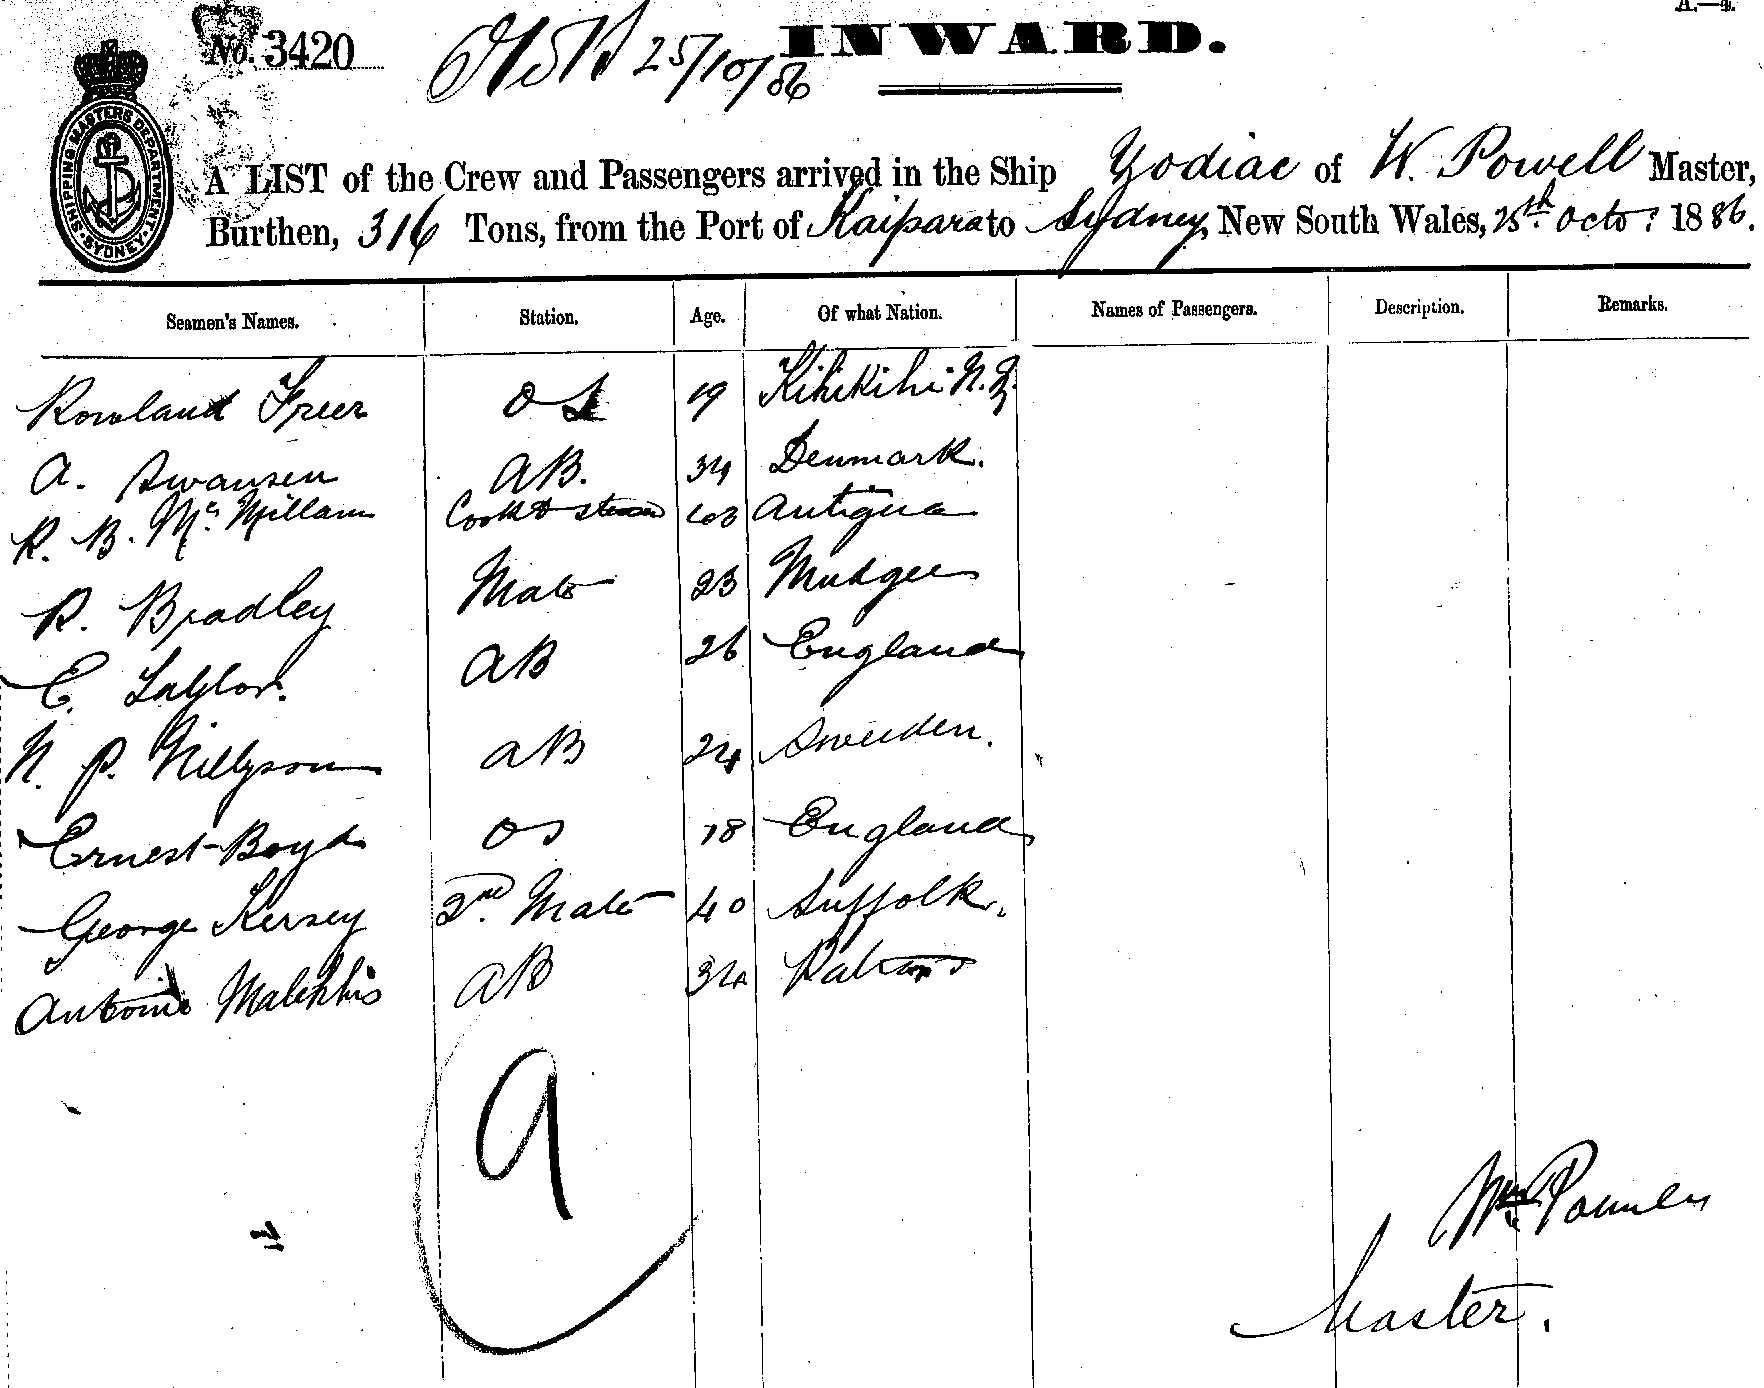 A.—4.
No. 3420 25/10/86 INWARD.
SHIPPING MASTERS DEPARTMENT. SYDNEY
A LIST of the Crew and Passengers arrived in the Ship Zodiac of W. Powell Master,
Burthen, 316 Tons, from the Port of Kaipara to Sydney, New South Wales, 25th Octo: 1886.
Seamen's Names. Station. Age. Of what Nation. Names of Passengers. Description. Remarks.
Rowland Freer OS 19 Kihikihi N.Z.
A. Swansen AB. 34 Denmark.
R. B. McMillan Cook & Antigua
R. Bradley Mate 23 Mudgee
E. Taylor. AB 26 England
N. P. AB 24 Sweeden.
Ernest Boyd OS 18 England
George Kersey 2nd Mate 40 Suffolk.
AB 34
9
Wm Powell
Master.